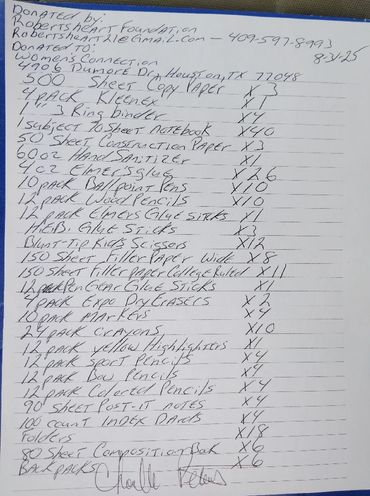 Donated by:
Robertsheart Foundation
Robertsheart21@gmail.com - 409-597-8993
Donated to: 8-31-25
Women's Connection
4906 Dumore Dr, Houston, TX 77048
500 Sheet Copy Paper X 3
4 pack Kleenex X 1
1 3 Ring binder X 4
1 Subject 70 Sheet notebook X 40
50 Sheet Construction Paper X 3
60 oz Hand Sanitizer X 1
4 oz Elmers glue X 26
10 pack Ballpoint Pens X 10
12 pack Wood Pencils X 10
12 pack Elmers Glue Sticks X 1
H.E.B. Glue Sticks X 3
Blunt-Tip Kids Scissors X 12
150 Sheet Filler Paper Wide X 8
150 Sheet Filler paper College Ruled X 11
12 pack Pen Gear Glue Sticks X 1
4 pack Expo Dry Erasers X 2
10 pack Markers X 4
24 pack Crayons X 10
12 pack yellow Highlighters X 1
12 pack Sport Pencils X 4
12 pack Bow Pencils X 4
12 pack Colored Pencils X 4
90 Sheet Post-it notes X 4
100 count Index Dards X 4
Folders X 18
80 Sheet Composition Book X 6
Backpacks X 6